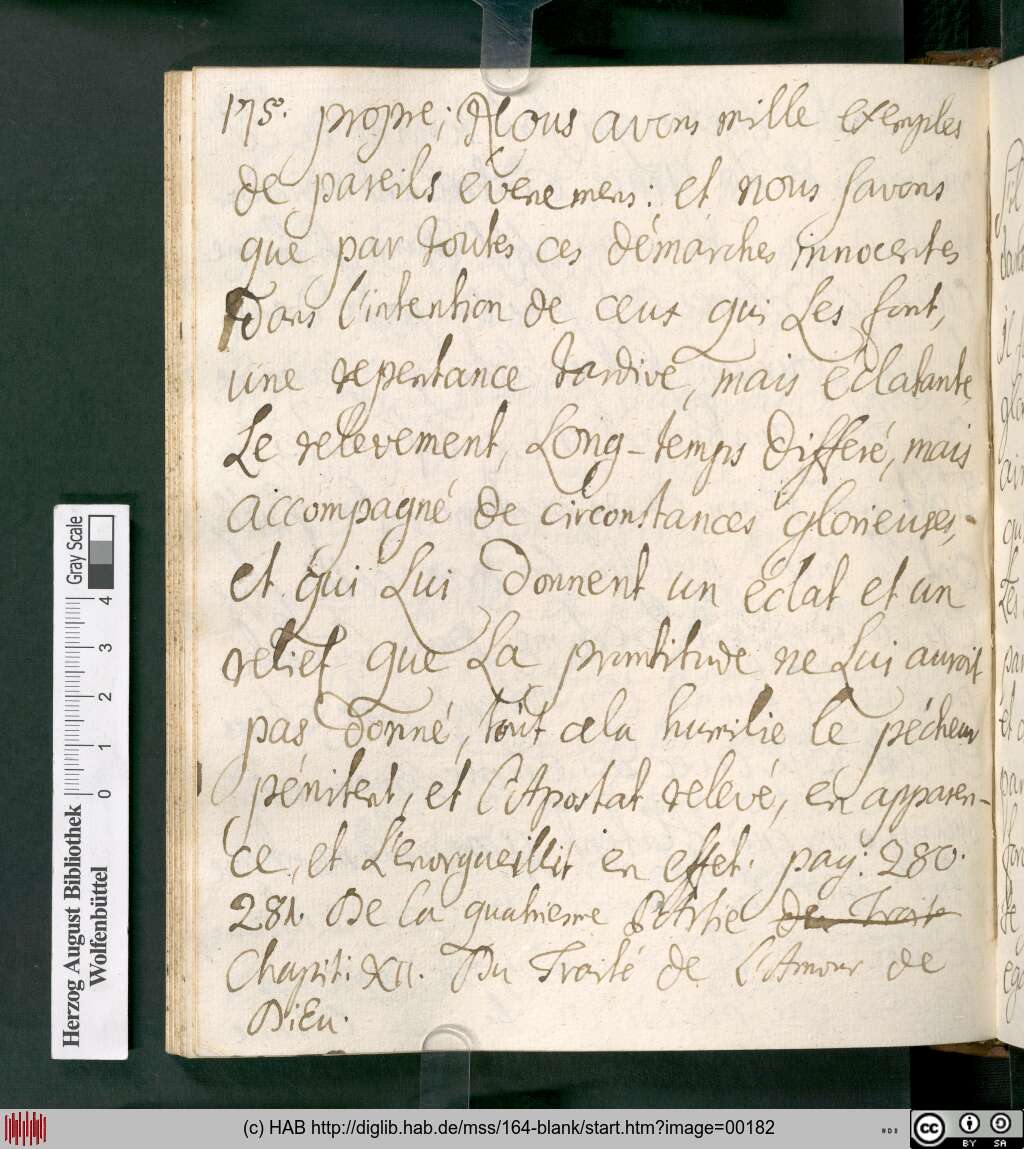 175. propre; Nous avons mille exemples
de pareils évenemens: et nous savons
que par toutes ces démarches innocentes
Dans l'intention de ceux qui Les font,
une repentance tardive, mais éclatante
Le relevement, Long-temps differé, mais
accompagné de circonstances glorieuses,
et qui Lui Donnent un éclat et un
relief que La promtitude ne Lui auroit
pas donné, tout cela humilie le pécheur
pénitent, et l'Apostat relevé, en apparen-
ce, et L'enorgueillit en effet. pag: 280.
281. De la quatriesme Partie de Traité
Chapit: XII. Du Traité de L'Amour de
Dieu.
Gray Scale
0 1 2 3 4
Herzog August Bibliothek
Wolfenbüttel
(c) HAB http://diglib.hab.de/mss/164-blank/start.htm?image=00182
cc BY SA